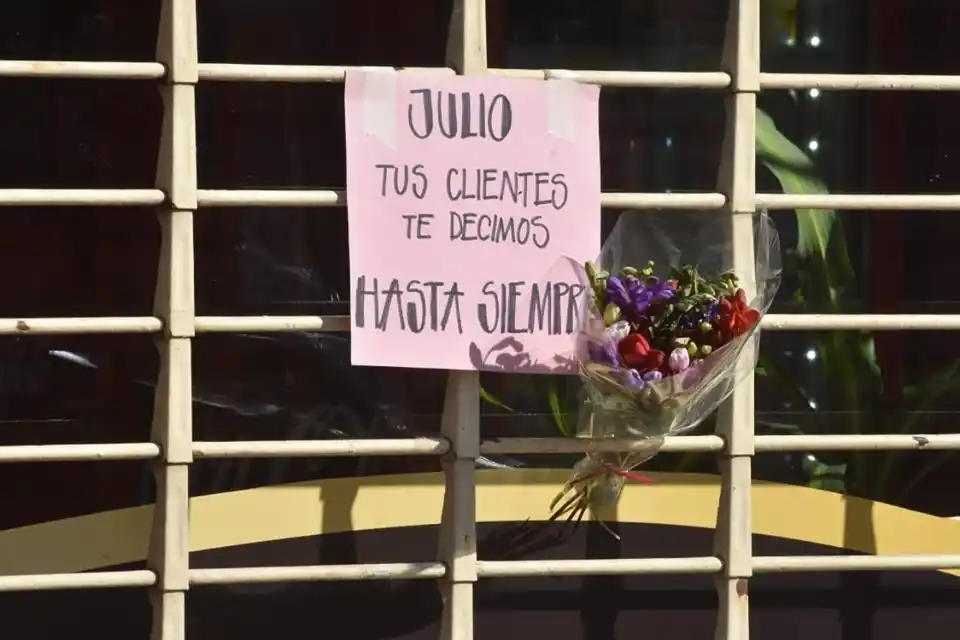 JULIO
TUS CLIENTES
TE DECIMOS
HASTA SIEMPR